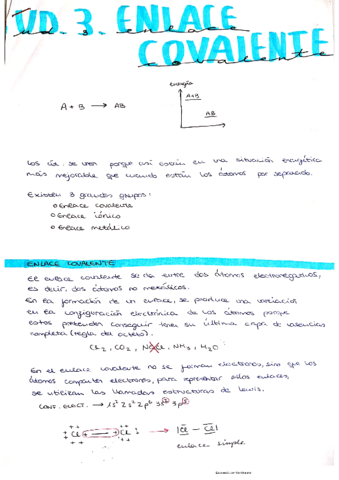 UD. 3. ENLACE
COVALENTE
enlace
covalente
energía
A + B → AB
A+B
AB
Los át. se unen porque así están en una situación energética
más mejorable que cuando están los átomos por separado.
Existen 3 grandes grupos:
Enlace covalente
Enlace iónico
Enlace metálico
ENLACE COVALENTE
El enlace covalente se da entre dos átomos electronegativos,
es decir, dos átomos no metálicos.
En la formación de un enlace, se produce una variación
en la configuración electrónica de los átomos porque
estos pretenden conseguir tener su última capa de valencia
completa (regla del octeto).
Cl₂, CO₂, NaCl, NH₃, H₂O
En el enlace covalente no se forman electrones, sino que los
átomos comparten electrones, para representar estos enlaces,
se utilizan las llamadas estructuras de Lewis.
CONF. ELECT. → 1s² 2s² 2p⁶ 3s² 3p⁵
Cl — Cl → |Cl — Cl|
enlace simple